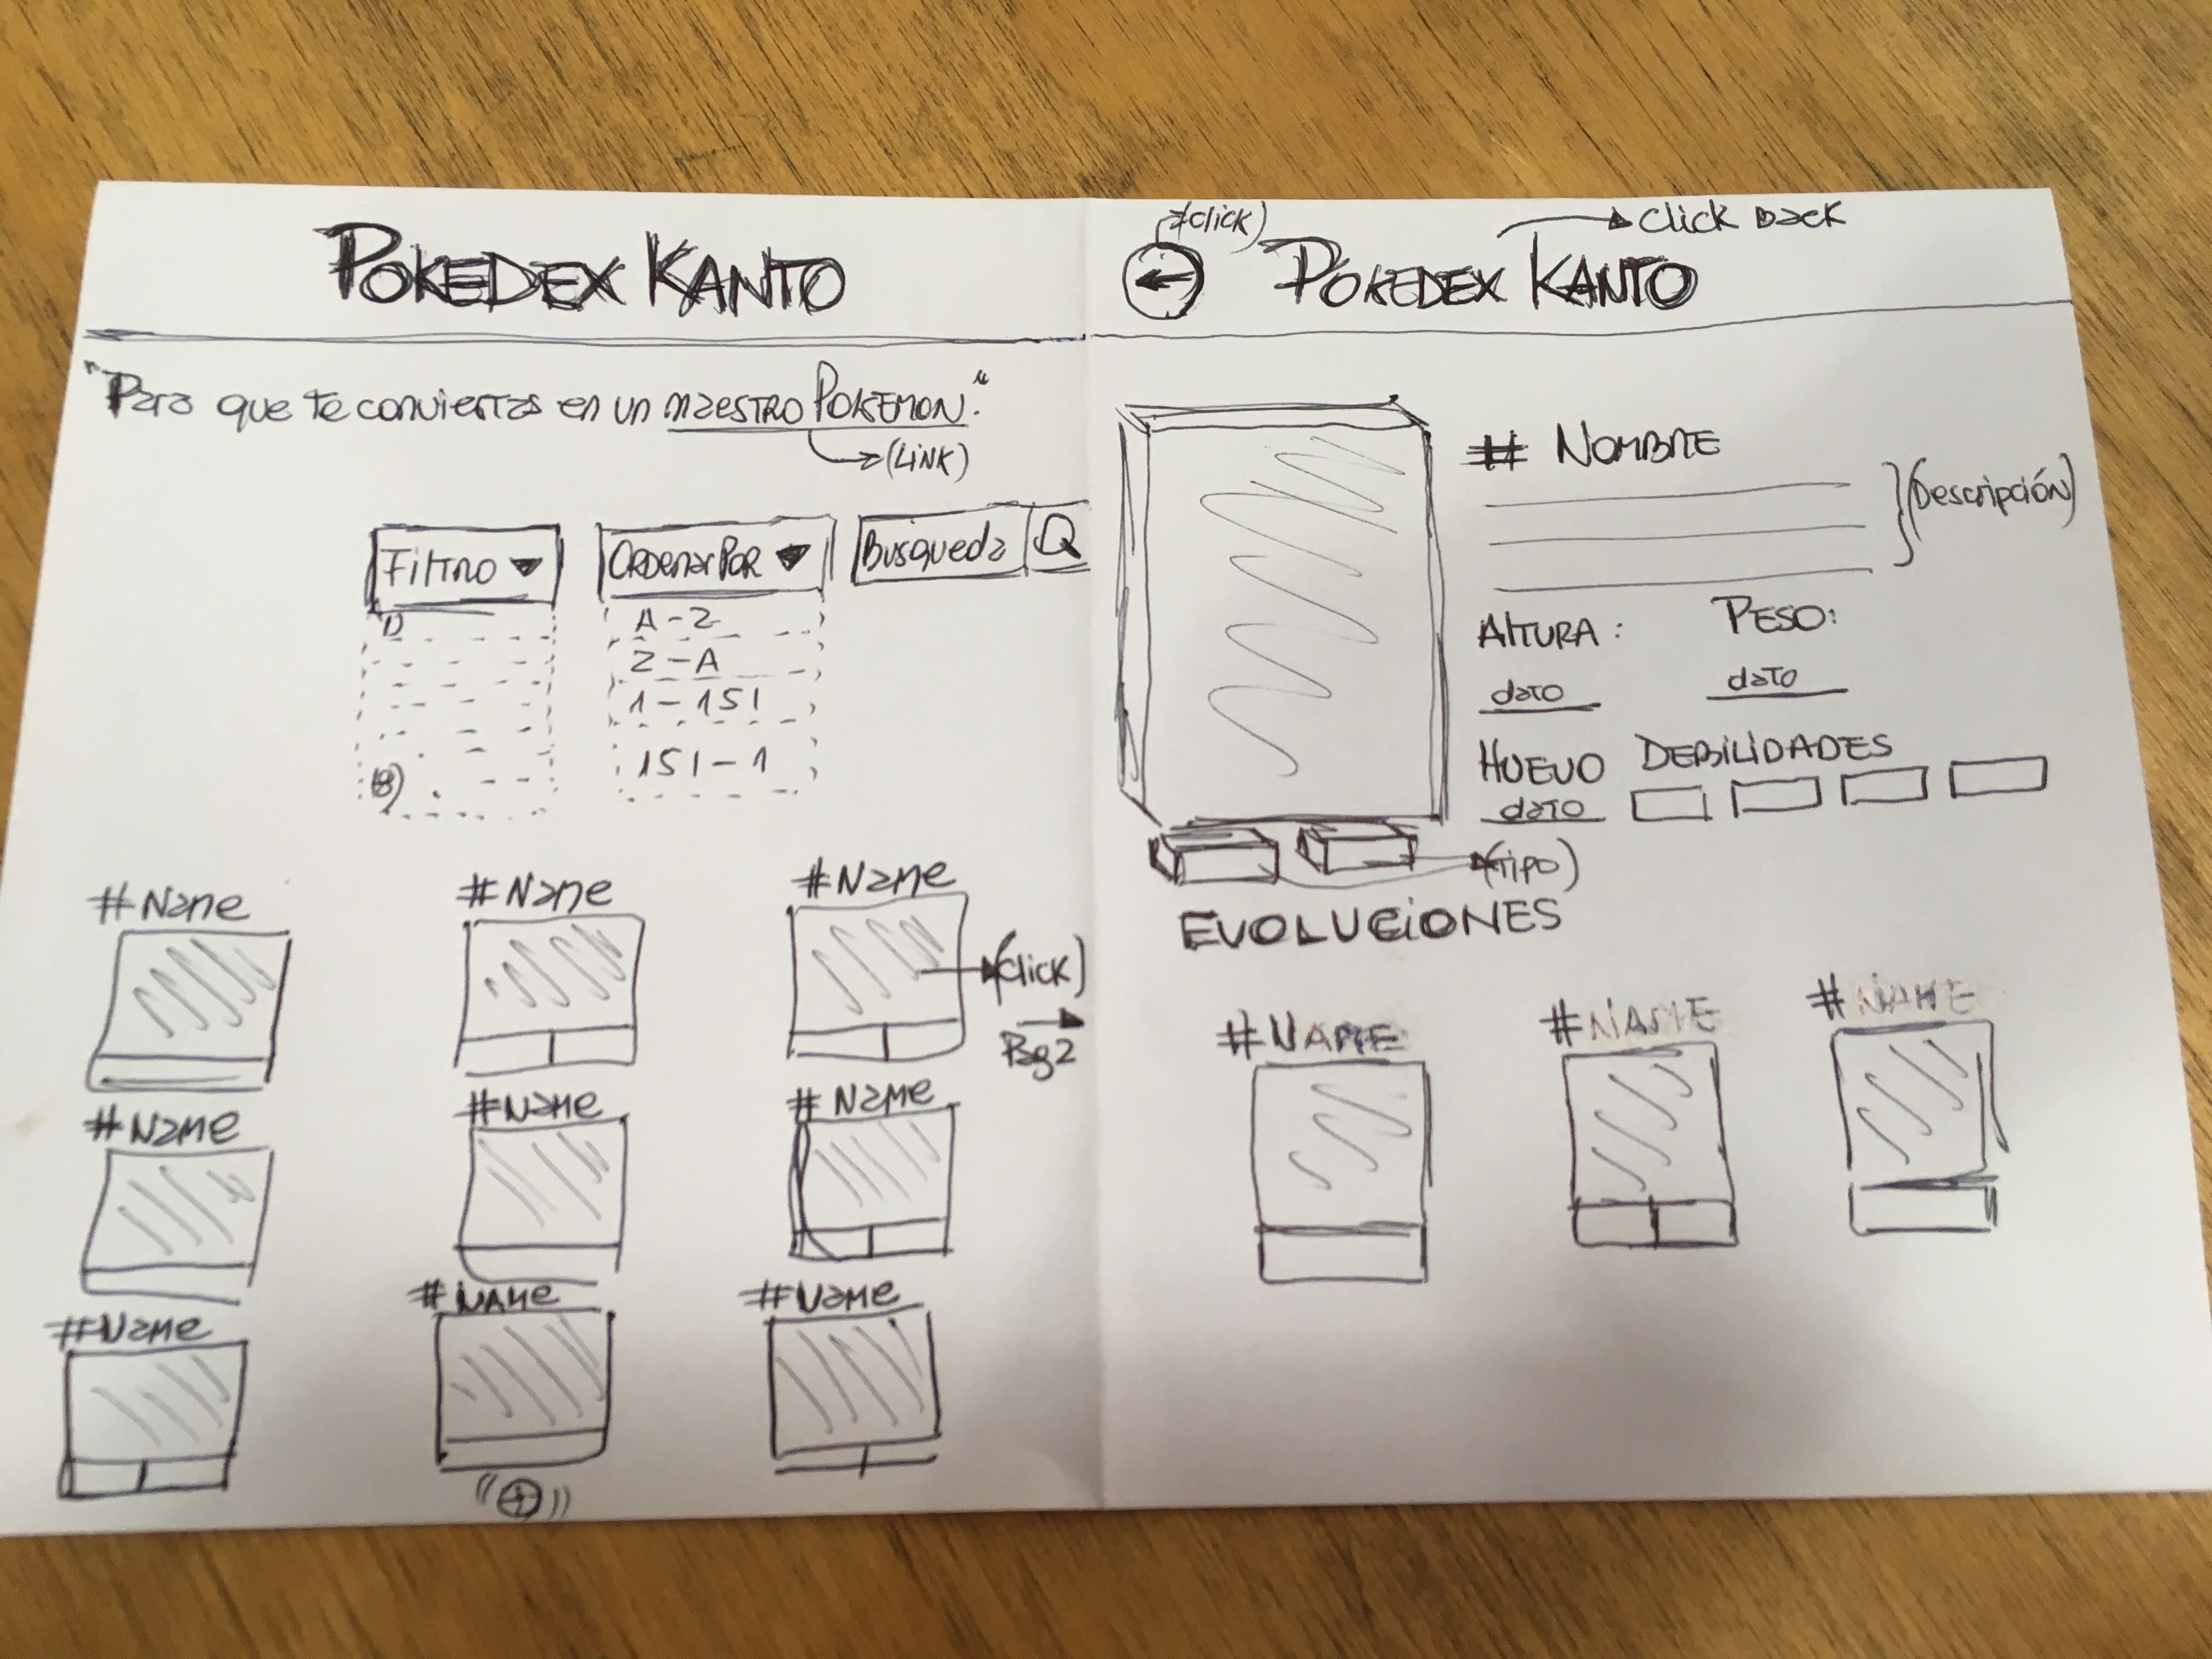 POKEDEX KANTO
"Para que te conviertas en un maestro POKEMON."
(LINK)
Filtro
Ordenar Por
Busqueda
A-Z
Z-A
1-151
151-1
#Name
#Name
#Name
(Click)
Pag 2
#Name
#Name
#Name
#Name
#NAMe
#Name
(Click)
Click Back
POKEDEX KANTO
# NOMBRE
(Descripción)
ALTURA:
PESO:
dato
dato
HUEVO
DEBILIDADES
dato
(TIPO)
EVOLUCIONES
#NAME
#NAME
#NAME